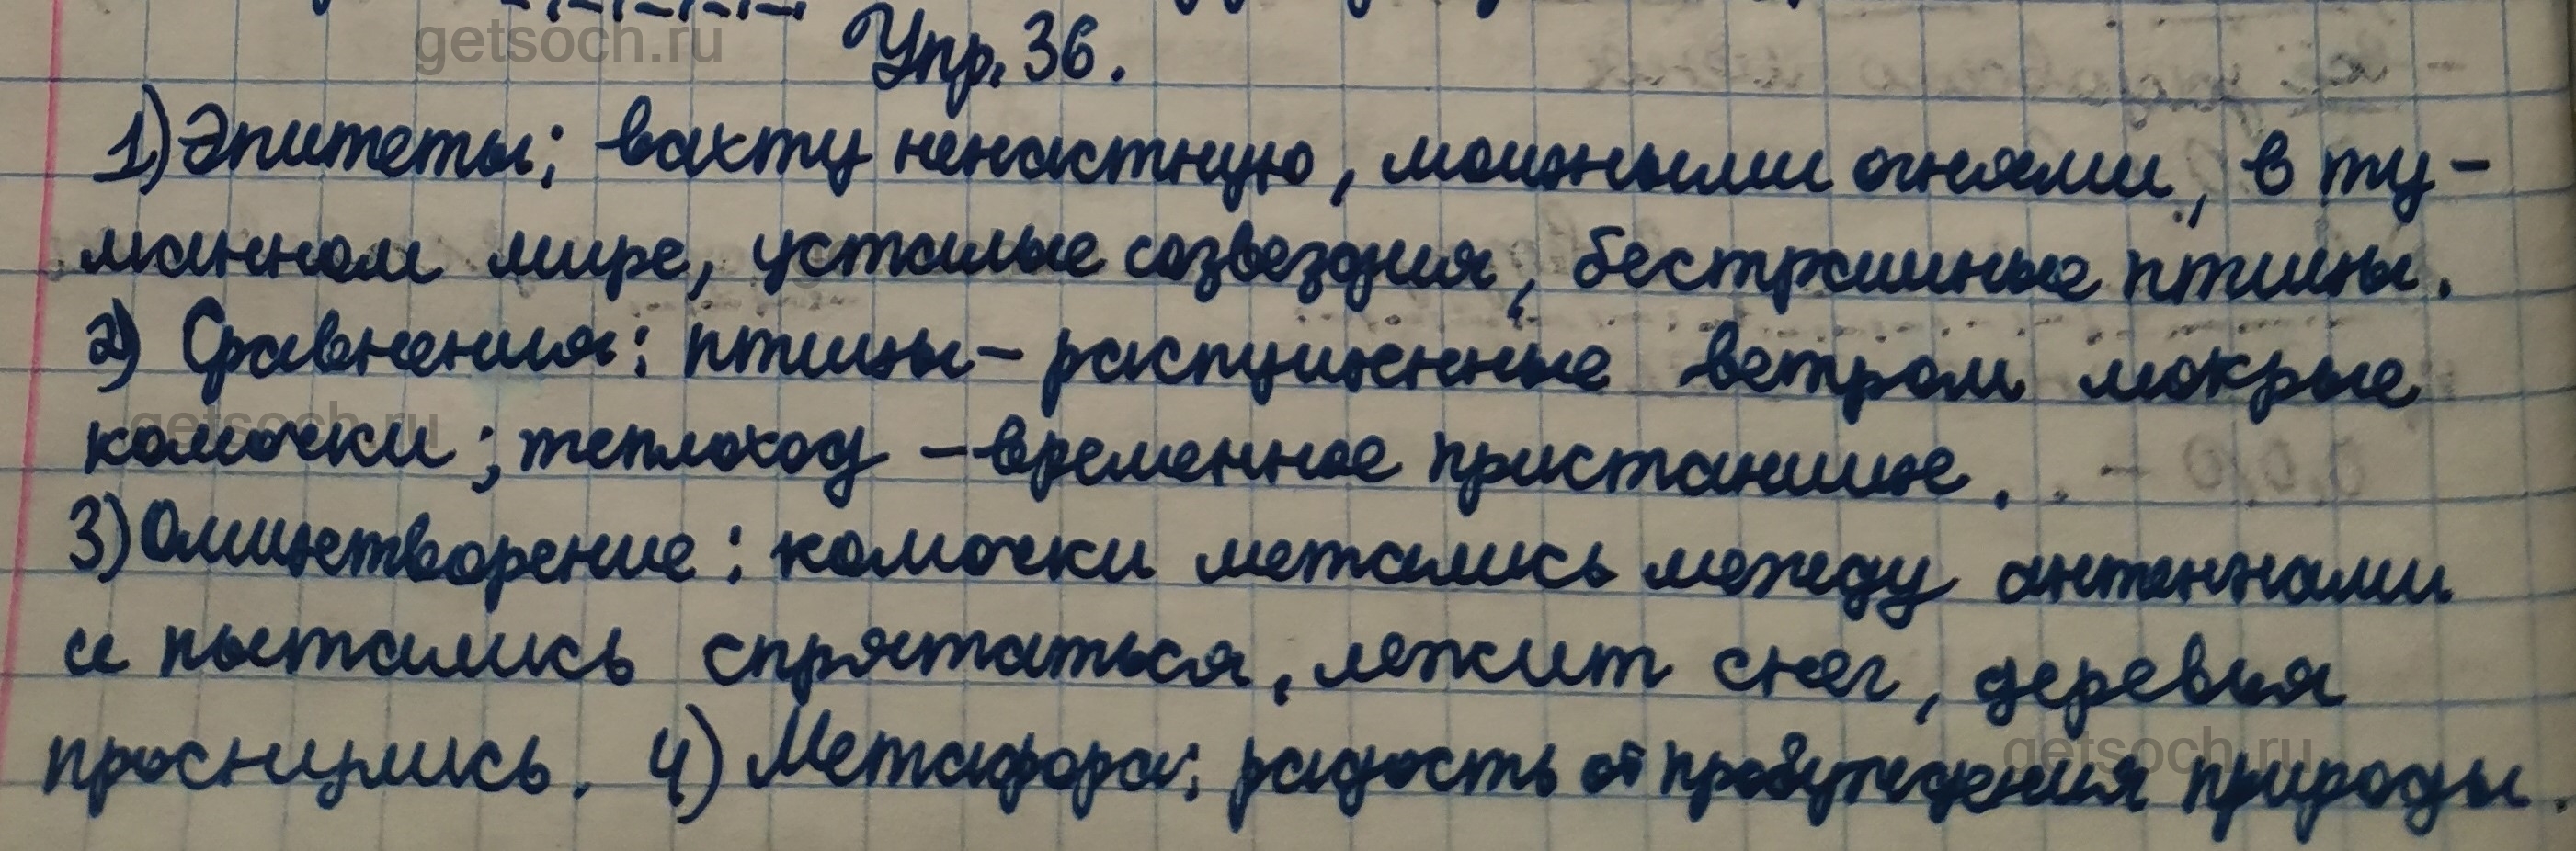 Упр. 36.
1) Эпитеты: вахту ненастную, мощными огнями, в ту-
манном мире, усталые созвездия, бесстрашные птицы.
2) Сравнения: птицы – распушенные ветром мокрые
комочки; теплоход – временное пристанище.
3) Олицетворение: комочки метались между антеннами
и пытались спрятаться, лежит снег, деревья
проснулись. 4) Метафора: радость от пробуждения природы.
getsoch.ru
getsoch.ru
getsoch.ru